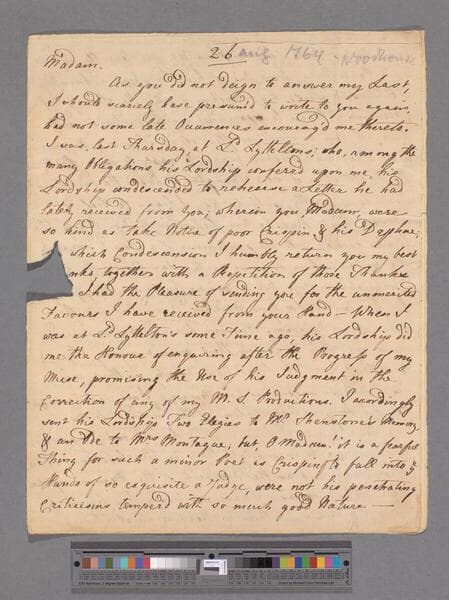 26 aug 1764 - Woodhouse
Madam.
As you did not deign to answer my Last,
I should scarcely have presum'd to write to you again,
had not some late Ocurrences encourag'd me thereto.
I was, last Thursday, at Ld. Lyttelton's; who, among the
many Obligations his Lordship confered upon me, his
Lordship condescended to rehearse a Letter he had
lately received from you; wherein you, Madam, were
so kind as take Notice of poor Crispin & his Daphne;
which Condescension I humbly return you my best
nks together with a Repetition of those Thanks
I had the Pleasure of sending you for the unmerited
Favours I have received from your Hand — When I
was at Ld. Lyttelton's some Time ago, his Lordship did
me the Honour of enquiring after the Progress of my
Muse, promising the Use of his Judgment in the
Correction of any of my M.S. Productions. I accordingly
sent his Lordship Two Elegies to Mr. Shenstone's Memory,
& an Ode to Mrs. Montague; but, O Madam! it is a fearful
Thing for such a minor Poet as Crispin to fall into ye
Hands of so exquisite a Judge, were not his penetrating
Criticisms temperd with so much good Nature —